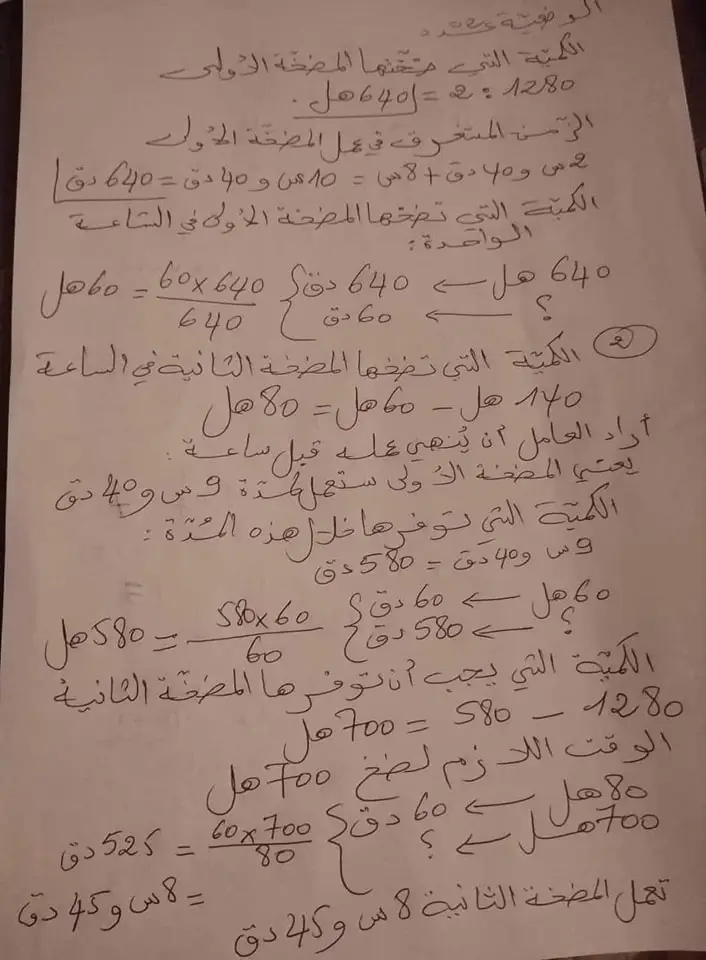 الوضعية
الكميّة التي ضخّتها المضخّة الأولى
1280 : 2 = 640 هل.
الزّمن المستغرق في عمل المضخّة الأولى
2 س و 40 دق + 8 س = 10 س و 40 دق = 640 دق
الكميّة التي تضخّها المضخة الأولى في السّاعة
الواحدة :
640 هل ← 640 دق
؟ ← 60 دق
60 × 640 / 640 = 60 هل
2 الكميّة التي تضخها المضخة الثانية في الساعة
140 هل – 60 هل = 80 هل
أراد العامل أن يُنهي عمله قبل ساعة :
يعني المضخة الأولى ستعمل لمدّة 9 س و 40 دق
الكميّة التي توفرها خلال هذه المُدّة :
9 س و 40 دق = 580 دق
60 هل ← 60 دق
؟ ← 580 دق
580 × 60 / 60 = 580 هل
الكميّة التي يجب أن توفرها المضخّة الثانية
1280 – 580 = 700 هل
الوقت اللازم لضخ 700 هل
80 هل ← 60 دق
700 هل ← ؟
60 × 700 / 80 = 525 دق
= 8 س و 45 دق
تعمل المضخة الثانية 8 س و 45 دق